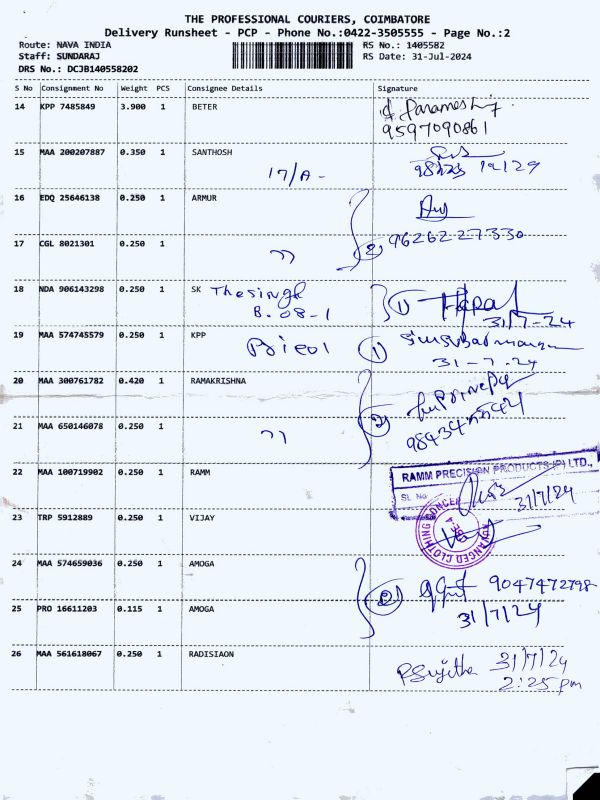 THE PROFESSIONAL COURIERS, COIMBATORE
Delivery Runsheet - PCP - Phone No.:0422-3505555 - Page No.:2
Route: NAVA INDIA
RS No.: 1405582
Staff: SUNDARAJ
RS Date: 31-Jul-2024
DRS No.: DCJB140558202
S No Consignment No Weight PCS Consignee Details Signature
14 KPP 7485849 3.900 1 BETER
9597090861
15 MAA 200207887 0.350 1 SANTHOSH
17/A -
16 EDQ 25646138 0.250 1 ARMUR
17 CGL 8021301 0.250 1
" (2) 9626227330
18 NDA 906143298 0.250 1 SK
B.08-1 (1) 31/7-24
19 MAA 574745579 0.250 1 KPP
(1) 31-7.24
20 MAA 300761782 0.420 1 RAMAKRISHNA
21 MAA 650146078 0.250 1
" (2)
22 MAA 100719902 0.250 1 RAMM
RAMM PRECISION PRODUCTS (P) LTD.,
SL No 31/7/24
23 TRP 5912889 0.250 1 VIJAY
ADVANCED CLOTHING
24 MAA 574659036 0.250 1 AMOGA
(2) 9047472798
25 PRO 16611203 0.115 1 AMOGA
31/7/24
26 MAA 561618067 0.250 1 RADISIAON
P Sujitha 31/7/24
2:25 pm